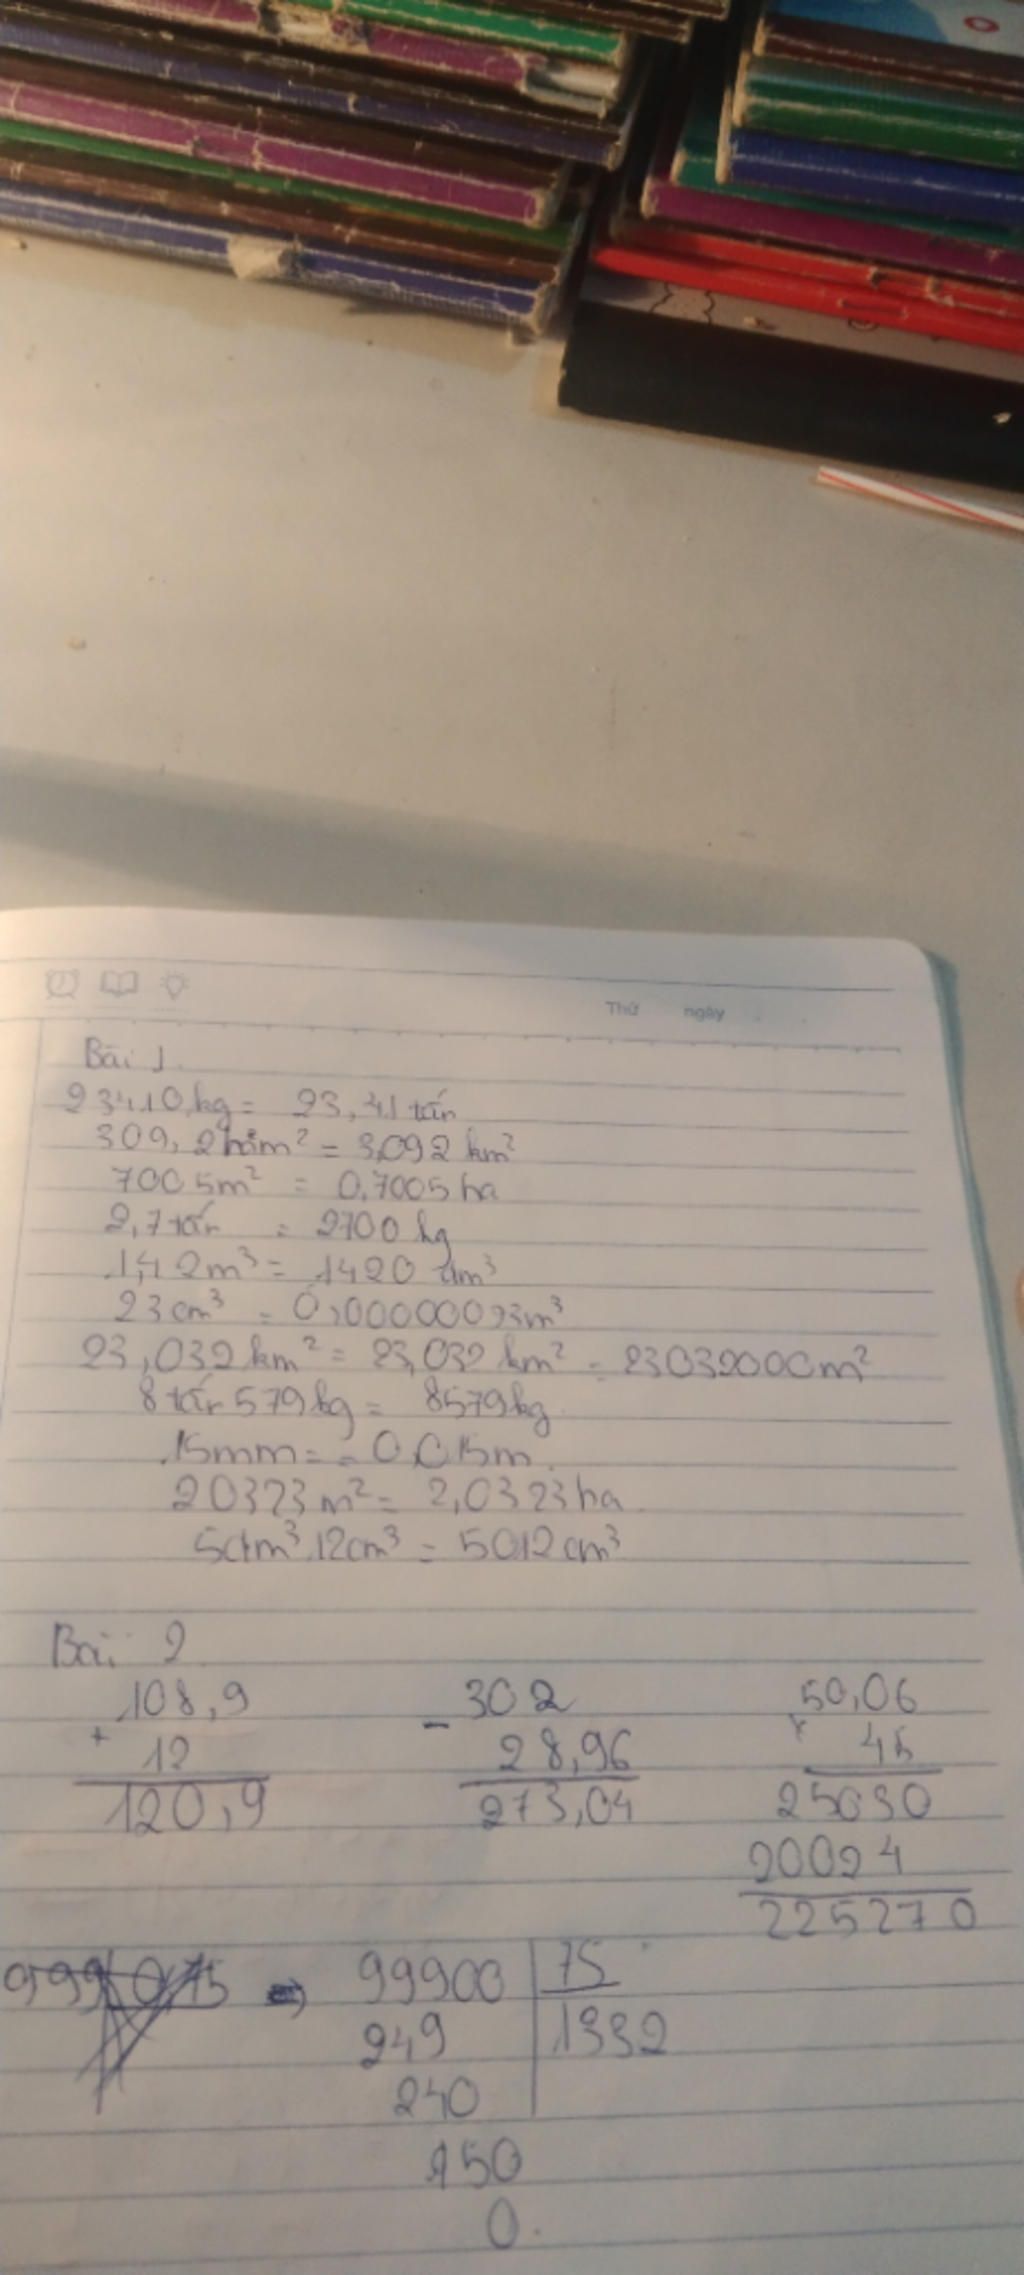 Thứ ngày
Bài 1
23410kg = 23,41 tấn
309,2 hm² = 3,092 km²
7005m² = 0,7005 ha
2,7 tấn = 2700 kg
1,42m³ = 1420 dm³
23cm³ = 0,00000023m³
23,032km² = 23,032 km² = 23032000m²
8 tấn 579kg = 8579kg
15mm = = 0,015m
20323m² = 2,0323ha
5dm³ 12cm³ = 5012cm³
Bài 2
108,9 - 302 50,06
+ 12 28,96 x 45
120,9 273,04 25030
20024
225270
99900 75
249 1332
240
150
0